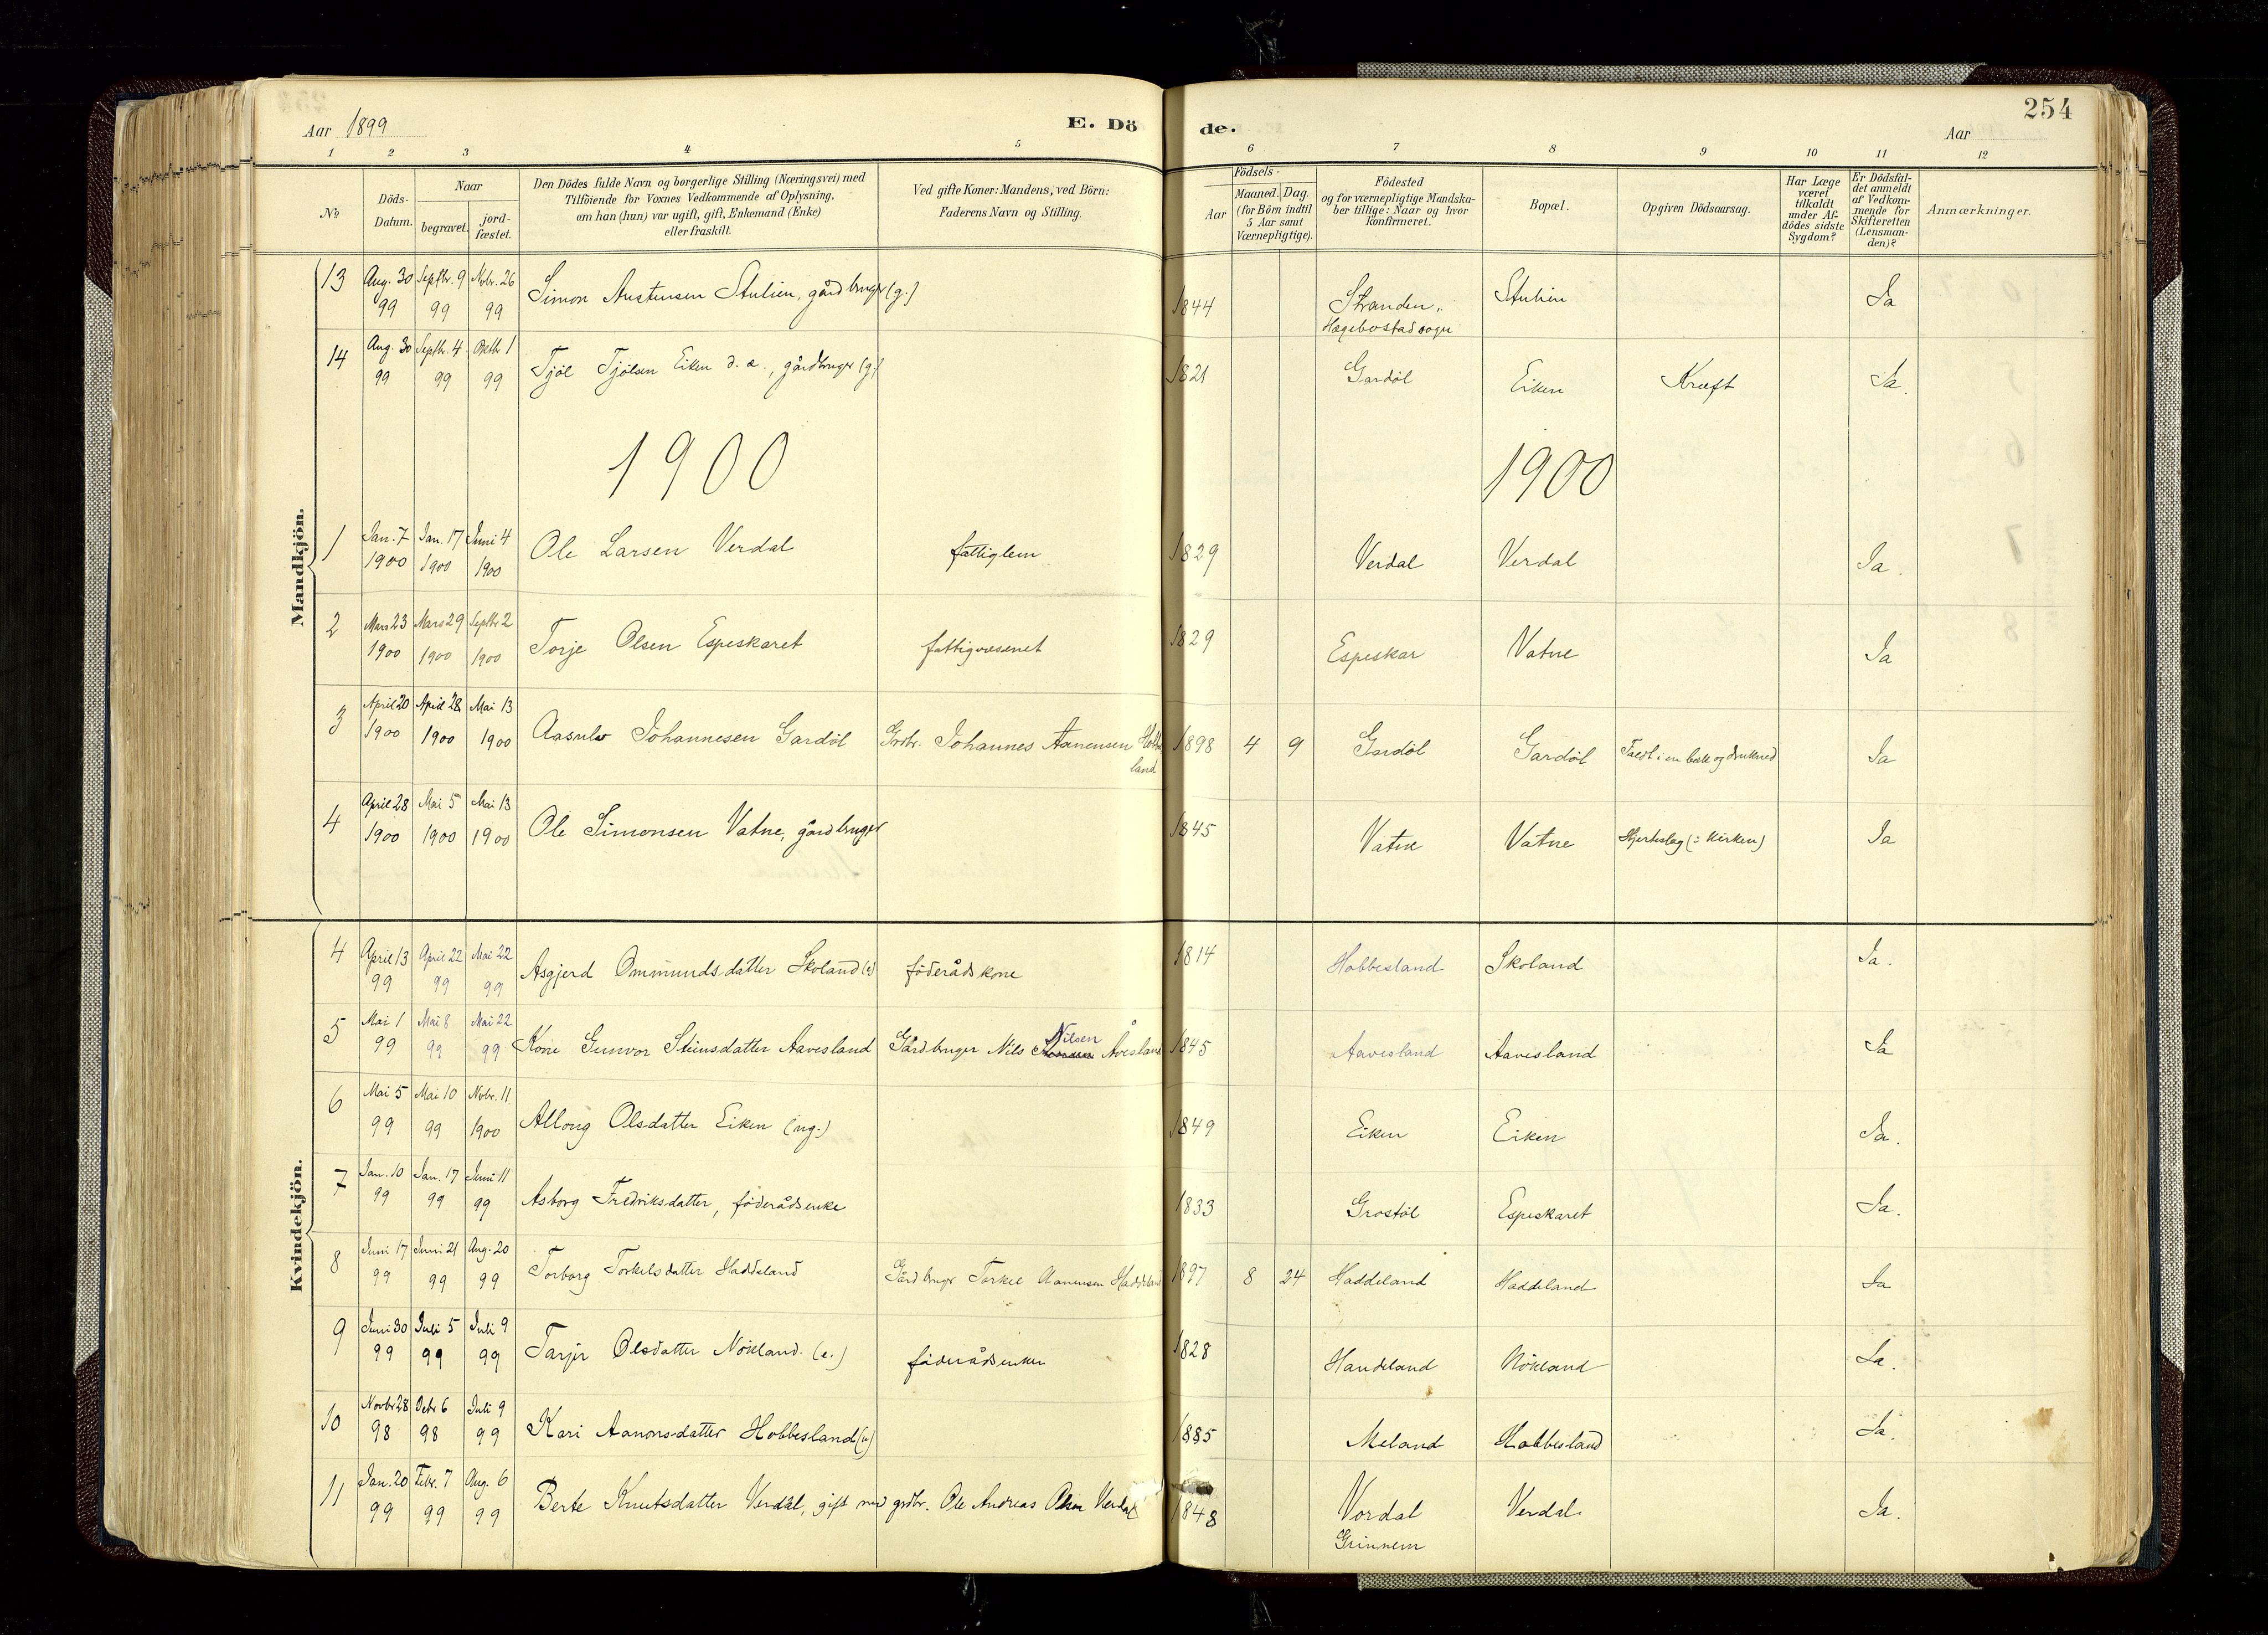 254
Aar 1899
E. Dö
de.
Aar
1 2 3 4 5 6 7 8 9 10 11 12
№
Döds-
Datum.
Naar
begravet.
jord-
fæstet.
Den Dödes fulde Navn og borgerlige Stilling (Næringsvei) med
Tilföiende for Voxnes Vedkommende af Oplysning,
om han (hun) var ugift, gift, Enkemand (Enke)
eller fraskilt.
Ved gifte Koner: Mandens, ved Börn:
Faderens Navn og Stilling.
Födsels-
Aar
Maaned. Dag.
(for Börn indtil
5 Aar samt
Værnepligtige).
Födested
og for værnepligtige Mandska-
ber tillige: Naar og hvor
konfirmeret.
Bopæl.
Opgiven Dödsaarsag.
Har Læge
været
tilkaldt
under Af-
dödes sidste
Sygdom?
Er Dödsfal-
det anmeldt
af Vedkom-
mende for
Skifteretten
(Lensman-
den)?
Anmærkninger.
Mandkjön.
13 Aug. 30 Septbr. 9 Nvbr. 26 Simon Austensen Stulien, gårdbruger (g.) 1844 Stranden, Stulien Ja
99 99 99 Hægebostad sogn
14 Aug. 30 Septbr. 4 Oktbr 1 Tjøl Tjølsen Eiken d. æ., gårdbruger (g.) 1821 Gardøl Eiken Kræft Ja.
99 99 99
1900 1900
1 Jan. 7 Jan. 17 Juni 4 Ole Larsen Verdal fattiglem 1829 Verdal Verdal Ja.
1900 1900 1900
2 Mars 23 Mars 29 Septbr 2 Torje Olsen Espeskaret fattigvæsenet 1829 Espeskar Vatne Ja
1900 1900 1900
3 April 20 April 28 Mai 13 Aasulv Johannesen Gardøl Grdbr. Johannes Aanensen 1898 4 9 Gardøl Gardøl Faldt i en bæk og drukned Ja
1900 1900 1900 land
4 April 28 Mai 5 Mai 13 Ole Simonsen Vatne, gårdbruger 1845 Vatne Vatne Hjerteslag (i kirken) Ja
1900 1900 1900
Kvindekjön.
4 April 13 April 22 Mai 22 Asgjerd Ommundsdatter Skoland (e) föderådskone 1814 Hobbesland Skoland Ja.
99 99 99
5 Mai 1 Mai 8 Mai 22 Kone Gunvor Stiensdatter Aavesland Gårdbruger Nils Nilsen Åvesland 1845 Aavesland Aavesland Ja
99 99 99
6 Mai 5 Mai 10 Nvbr. 11 Allong Olsdatter Eiken (ug.) 1849 Eiken Eiken Ja.
99 99 1900
7 Jan. 10 Jan. 17 Juni 11 Asborg Fredriksdatter, föderådsenke 1833 Grostöl Espeskaret Ja.
99 99 99
8 Juni 17 Juni 21 Aug. 20 Torborg Torkelsdatter Haddeland Gårdbruger Torkel Aanensen Haddeland 1897 8 24 Haddeland Haddeland Ja
99 99 99
9 Juni 30 Juli 5 Juli 9 Tarjer Olsdatter Nökland. (e.) föderådsenke 1828 Handeland Nökland Ja.
99 99 99
10 Novbr 28 Debr 6 Juli 9 Kari Aanonsdatter Hobbesland (u) 1885 Meland Hobbesland Ja.
98 98 99
11 Jan. 20 Febr. 7 Aug. 6 Berte Knutsdatter Verdal, gift med grdbr. Ole Andreas Olsen Verdal 1848 Vordal Verdal. Ja.
99 99 99 Grinnem